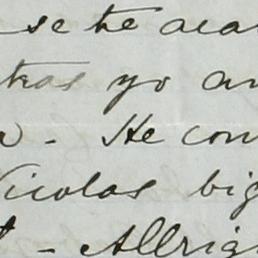 se he
tras yo an
- He com
Nicolas big
- Allrig